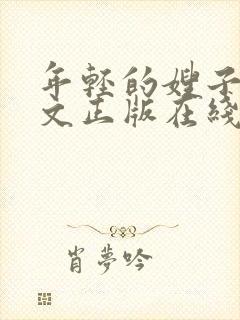 年轻的嫂子
文正版在綫
肖夢吟